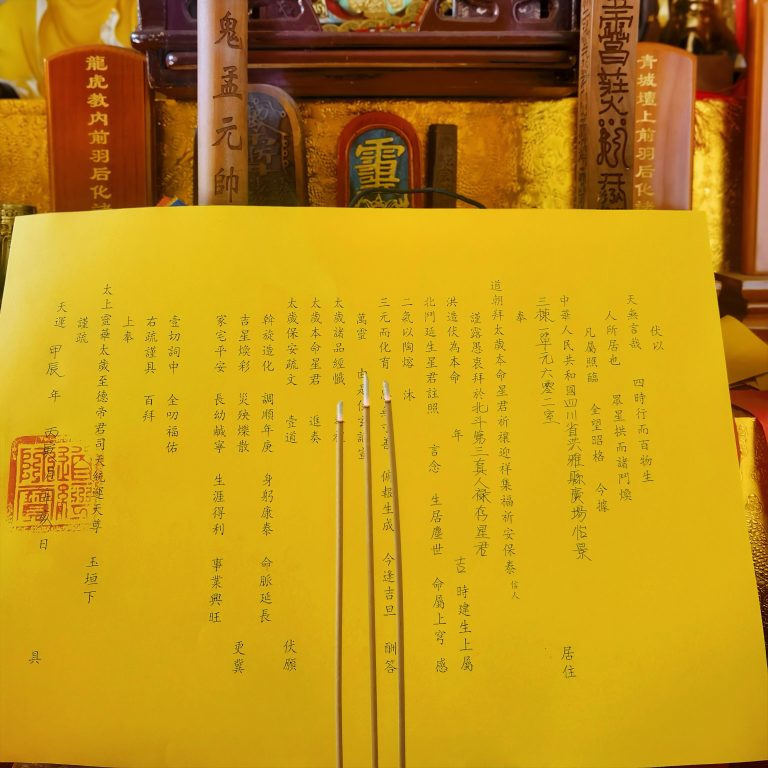 龍虎教内前羽后化諸
鬼孟元帥
靈
青城壇上前羽后化諸
伏以
天無言哉 四時行而百物生
人所居也 眾星拱而諸門煥
凡屬照臨 全望昭格 今據
中華人民共和國四川省洪雅縣廣場怡景
三棟一單元六零二室 居住
奉
道朝拜太歲本命星君祈禳迎祥集福祈安保泰信人
謹露愚衷拜於北斗第三真人祿存星君
洪造伏為本命 年 吉時建生上屬
北鬥延生星君註照 言念 生居塵世 命屬上穹 感
二氣以陶熔 沐
三元而化育 備報生成 今逢吉旦 酬答
萬靈
太歲諸品經懺
太歲本命星君 進奏
太歲保安疏文 壹道 伏願
斡旋造化 調順年庚 身躬康泰 命脈延長
吉星煥彩 災殃爍散 更冀
家宅平安 長幼咸寧 生涯得利 事業興旺
壹切詞中 全叨福佑
右疏謹具 百拜
上奉
太上靈華太歲至德帝君司天統運天尊 玉垣下
謹疏
天運 甲辰 年 丙寅 月 日 具